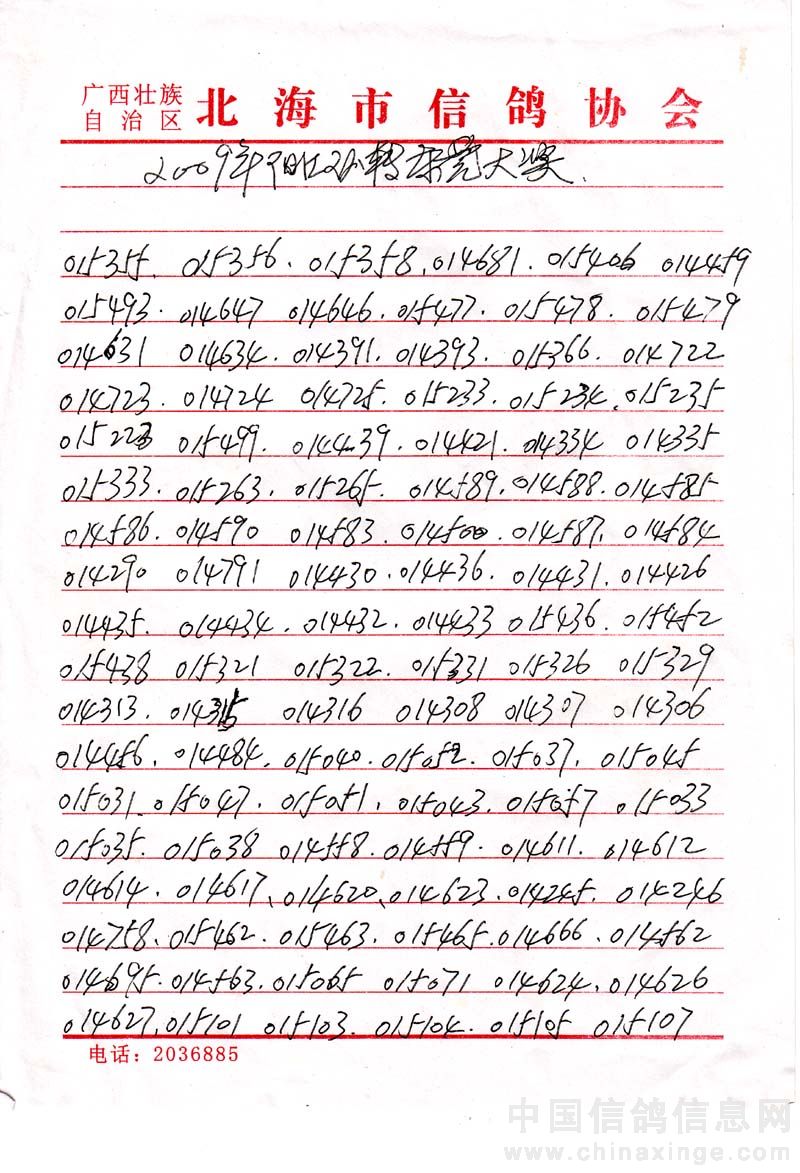 广西壮族
自治区 北海市信鸽协会
2009年 转 大奖
015355. 015356. 015358. 014681. 015406 014459
015493. 014647 014646. 015477. 015478. 015479
014631 014634. 014391. 014393. 015366. 014722
014723. 014724 014725. 015233. 015234. 015235
015223 015499. 014439. 014421. 014334 014335
015333. 015263. 015265. 014589. 014588. 014585
014586. 014590 014583. 014500. 014587. 014584
014290 014791 014430. 014436. 014431. 014426
014435. 014434. 014432. 014433 015436. 015452
015438 015321 015322. 015331 015326 015329
014313. 014315 014316 014308 014307 014306
014456. 014484. 015040. 015052. 015037. 015045
015031. 015047. 015051. 015043. 015057 015033
015035. 015038 014558. 014559. 014611. 014612
014614. 014617、014620、014623. 014245. 014246
014758. 015462. 015463. 015465. 014666. 014562
014695. 014563. 015065 015071 014624. 014626
014627. 015101 015103. 015104. 015105 015107
电话：2036885
中国信鸽信息网
www.chinaxinge.com